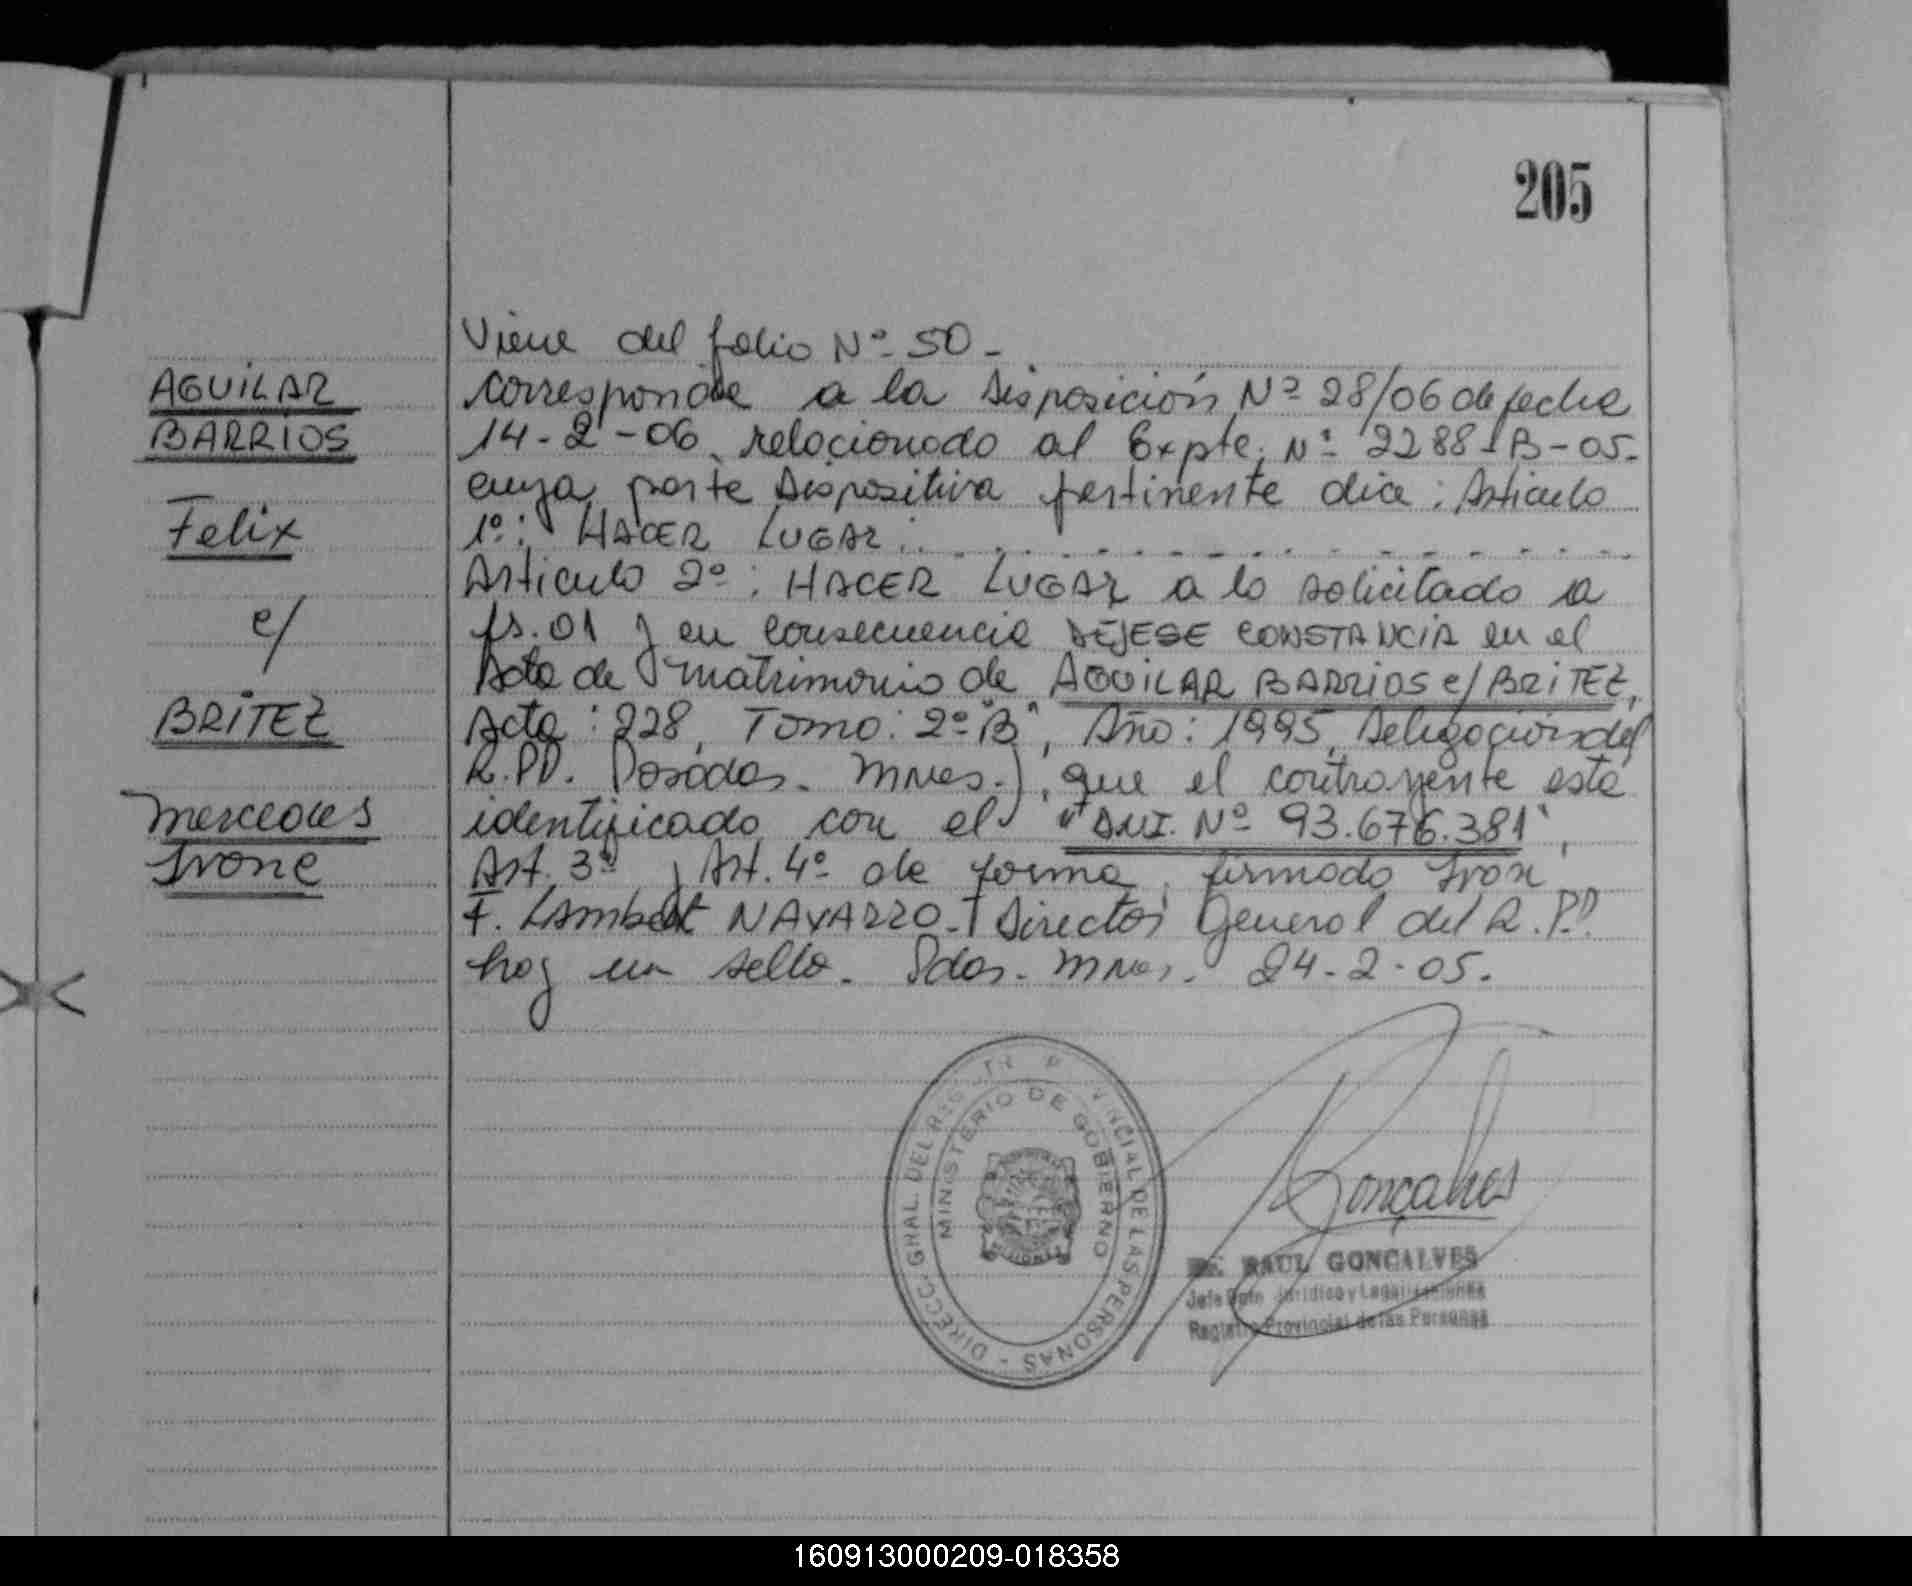 205
Viene del folio Nº 50-
AGUILAR
BARRIOS
Felix
c/
BRITEZ
Mercedes
Ivone
corresponde a la Disposición Nº 28/06 de fecha
14-2-06, relacionado al Expte. Nº 2288-B-05-
cuya parte Dispositiva pertinente dice: Articulo
1º: HACER LUGAR:
Articulo 2º: HACER LUGAR a lo solicitado a
fs. 01 y en consecuencia DEJESE CONSTANCIA en el
Acta de Matrimonio de AGUILAR BARRIOS c/ BRITEZ,
Acta: 228, Tomo: 2º "B", Año: 1995, Delegación del
R.P.P. Posadas. Mnes.), que el contrayente esta
identificado con el "DNI. Nº 93.676.381",
Art. 3º y Art. 4º de forma, firmado Ivon
F. Lambert NAVARRO-Director General del R.P.P.
hay un sello. Pdas. Mnes. 24-2-05.
DIRECC. GRAL. DEL REGISTRO PROVINCIAL DE LAS PERSONAS -
MINISTERIO DE GOBIERNO
MISIONES
Gonçalves
Dr. RAUL GONCALVES
Jefe Dpto. Jurídico y Legalizaciones
Registro Provincial de las Personas
160913000209-018358